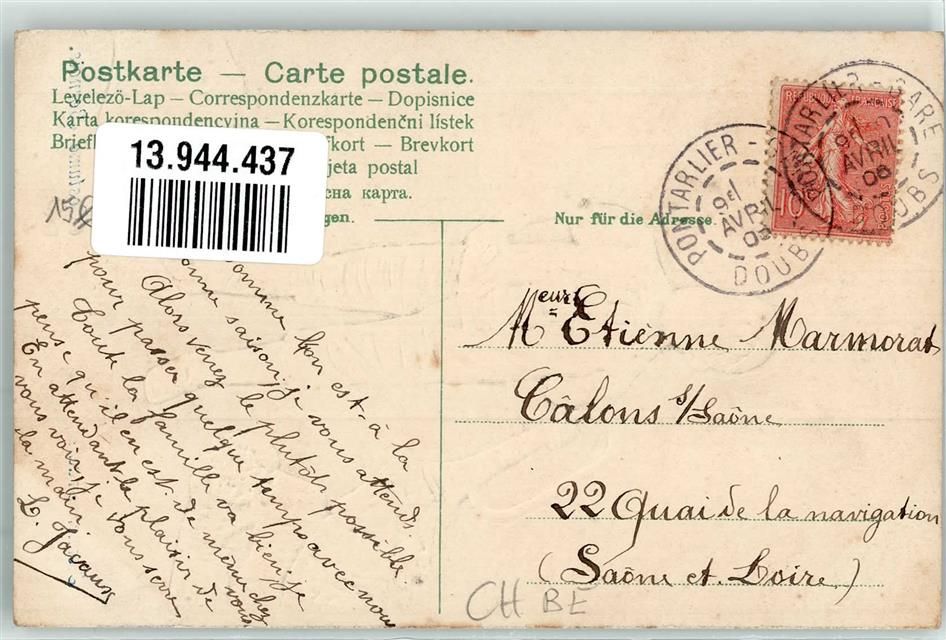 Postkarte — Carte postale.
Levelezö-Lap — Correspondenzkarte — Dopisnice
Karta korespondencyjna — Korespondenční lístek
Briefk fkort — Brevkort
jeta postal
сна карта.
13.944.437
gen.
Nur für die Adresse.
PONTARLIER - GARE
AVRIL
06
DOUBS
PONTARLIER -
AVRIL
DOUBS
REPUBLIQUE FRANÇAISE
10
POSTES
Meurs Etienne Marmorat
Câlons s/Saône
22 Quai de la navigation
(Saône et Loire)
Comme l'on est à la
bonne saison, je vous attends.
Alors venez le plutôt possible
pour passer quelque temps avec nous
Tout la famille va bien, je
pense qu'il en est de même chez vous
En attendant le plaisir de
vous voir, je vous serre
la main.
CH BE